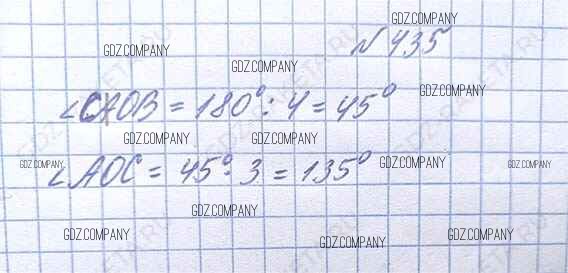 № 435
∠COB = 180° : 4 = 45°
∠AOC = 45° · 3 = 135°
GDZ.COMPANY
GDZ.COMPANY
GDZ.COMPANY
GDZ.COMPANY
GDZ.COMPANY
GDZ.COMPANY
GDZ.COMPANY
GDZ.COMPANY
GDZ.COMPANY
GDZ.COMPANY
GDZ.COMPANY
GDZ.COMPANY
GDZ.COMPANY